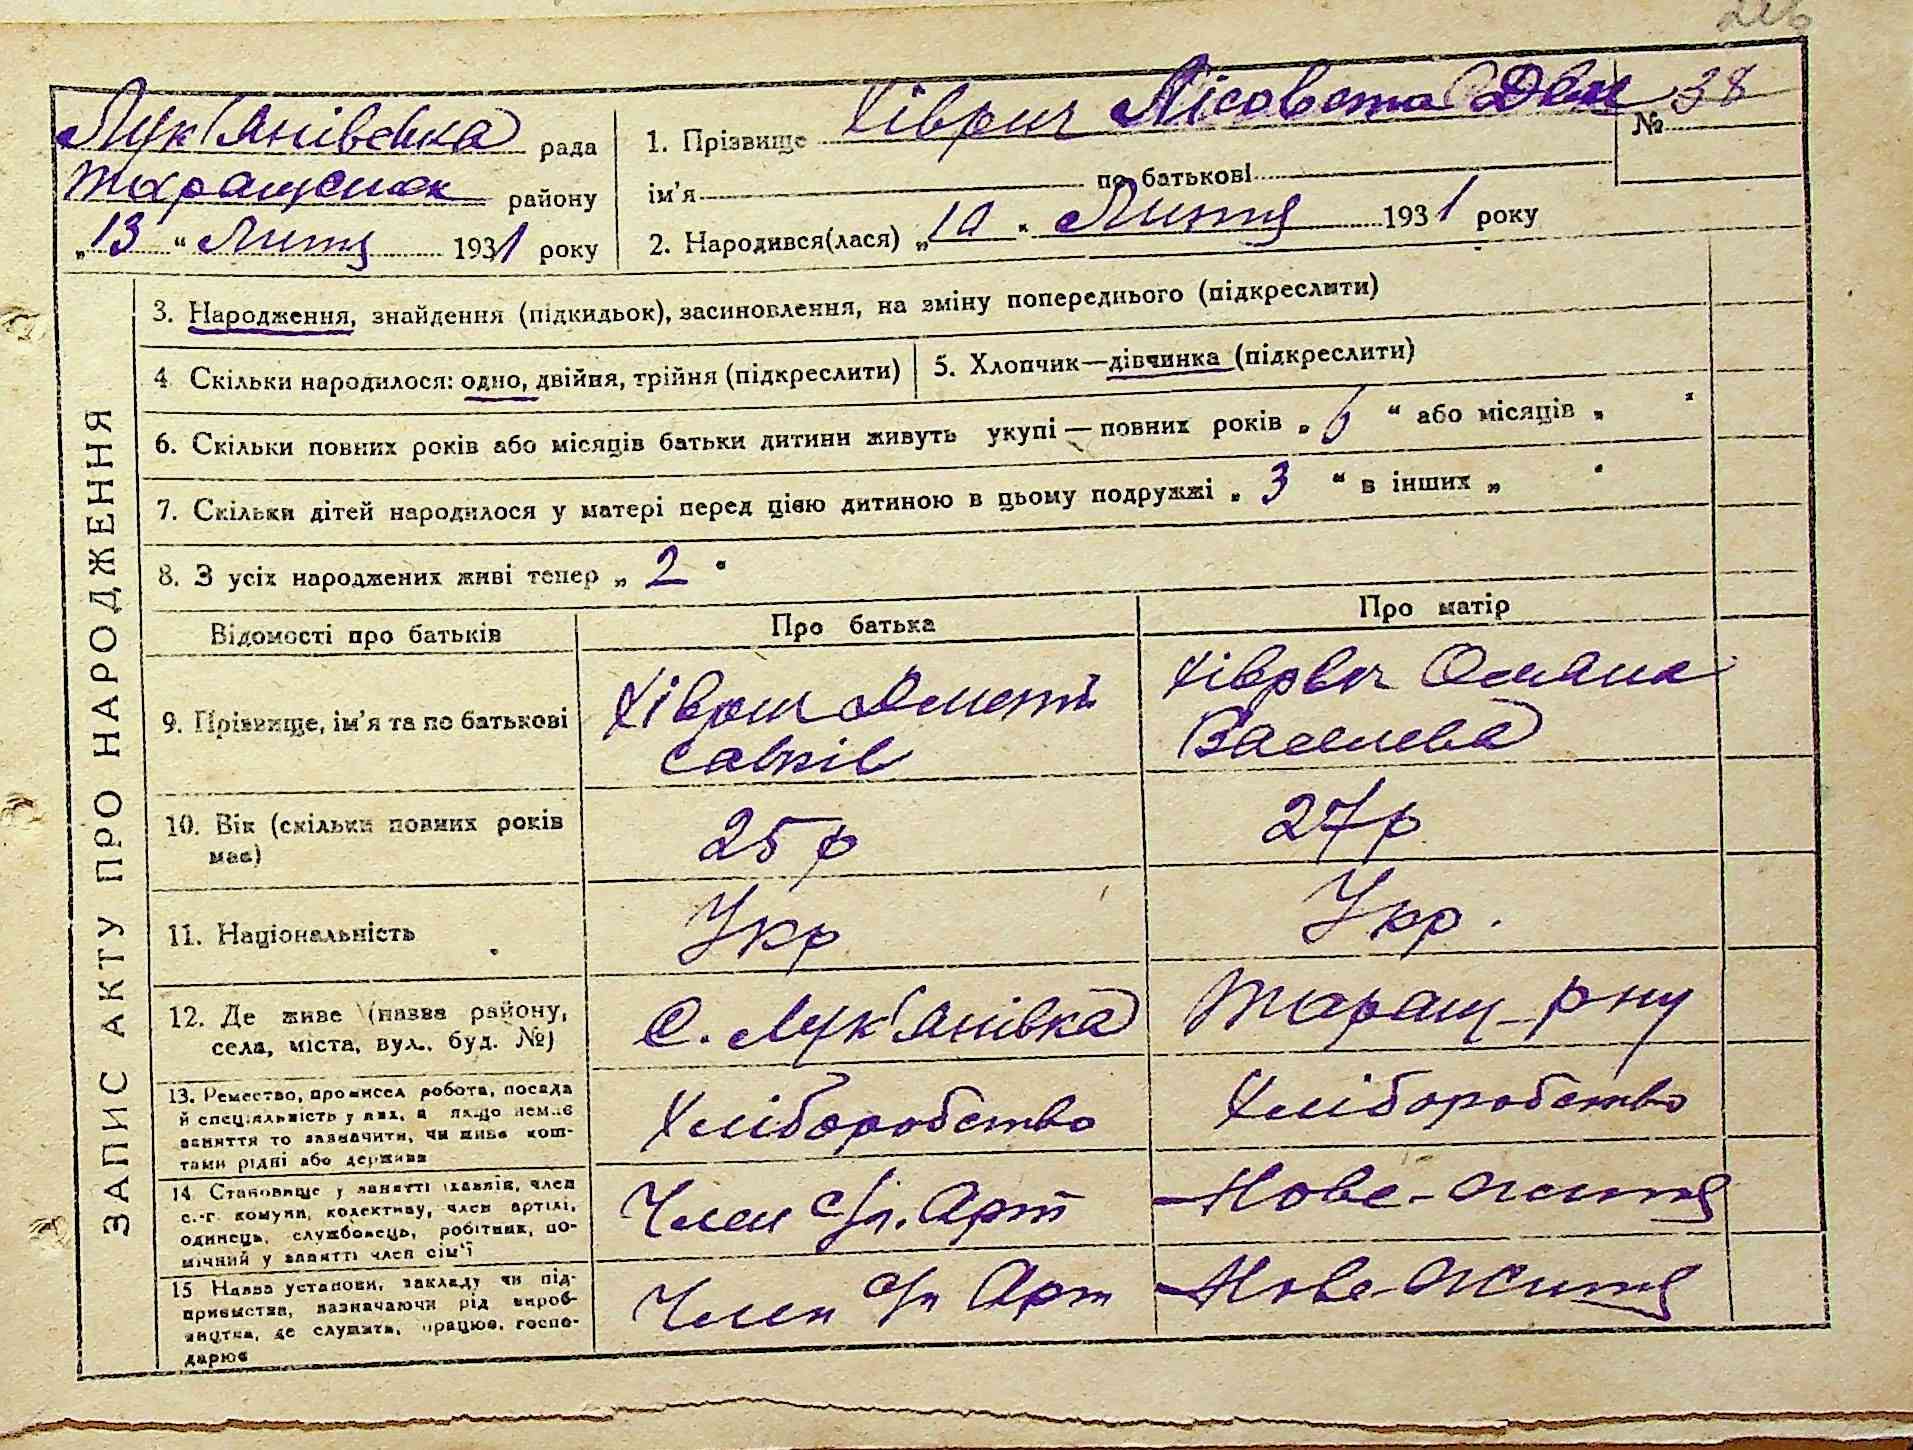 Лук'янівська рада
Таращанск району
„13“ Лютня 1931 року
1. Прізвище Хіврич Лісовета Дем
№ 38
ім'я по батькові
2. Народився(лася) „10“ Лютня 1931 року
ЗАПИС АКТУ ПРО НАРОДЖЕННЯ
3. Народження, знайдення (підкидьок), засиновлення, на зміну попереднього (підкреслити)
4. Скільки народилося: одно, двійня, трійня (підкреслити)
5. Хлопчик—дівчинка (підкреслити)
6. Скільки повних років або місяців батьки дитини живуть укупі — повних років „6“ або місяців „ “
7. Скільки дітей народилося у матері перед цією дитиною в цьому подружжі „3“ в інших „ “
8. З усіх народжених живі тепер „2“
Відомості про батьків
Про батька
Про матір
9. Прізвище, ім'я та по батькові
Хіврич
Савків
Хіврич
Василева
10. Вік (скільки повних років
має)
25 р
27 р
11. Національність
Укр
Укр.
12. Де живе (назва району,
села, міста, вул., буд. №)
С. Лук'янівка
Таращ_рну
13. Ремество, промисел робота, посада
й спеціяльність у них, а якщо немає
заняття то зазначити, чи живе кош-
тами рідні або держави
Хліборобство
Хліборобство
14. Становище у занятті хазяїн, член
с.-г. комуни, колективу, член артілі,
одинець, службовець, робітник, по-
мічний у занятті член сім'ї
Член с/г. Арт
Нове-житя
15 Назва установи, закладу чи під-
приємства, зазначаючи рід вироб-
ництва, де служить, працює, госпо-
дарює
Член с/г Арт
Нове-житя